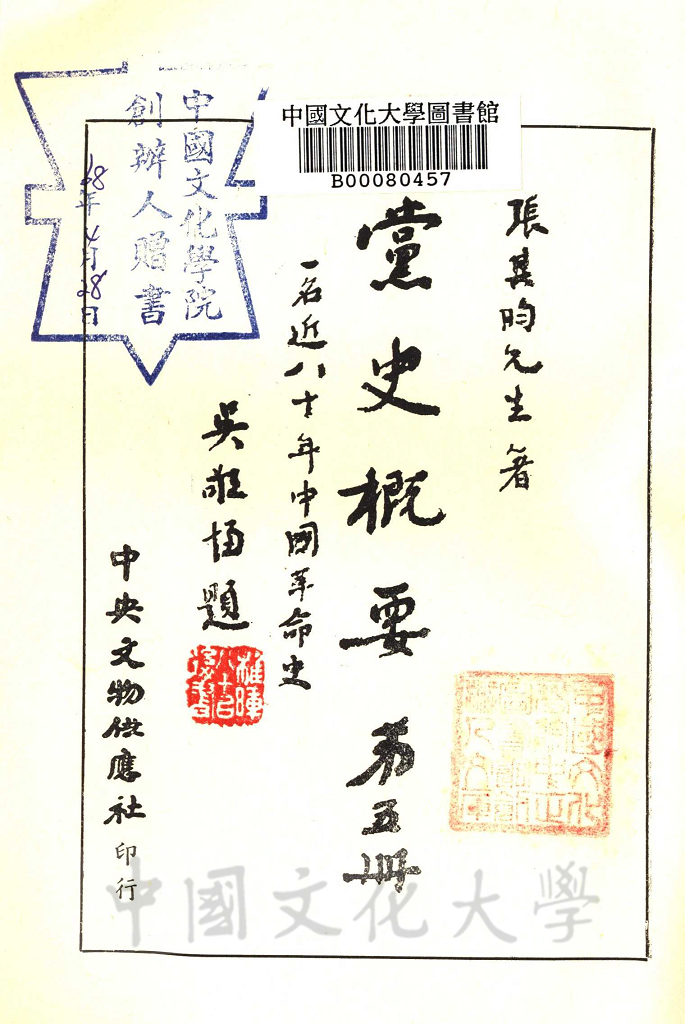 中國文化大學圖書館
B00080457
張其昀先生著
黨史概要 第五冊
一名近八十年中國革命史
吳敬恆題
中央文物供應社印行
中國文化學院
創辦人贈書
68年4月28日
中國文化大學